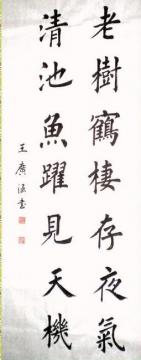 老樹鶴棲存夜氣
清池魚躍見天機
王廣濤書